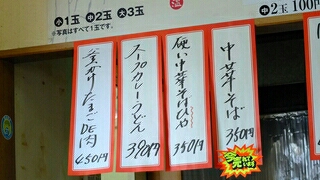 小1玉 中2玉 大3玉
※写真はすべて1玉です。
中2玉 100円
釜かけたまごDE肉
450円
スープカレーうどん
390円
硬い中華そばひや
350円
中華そば
350円